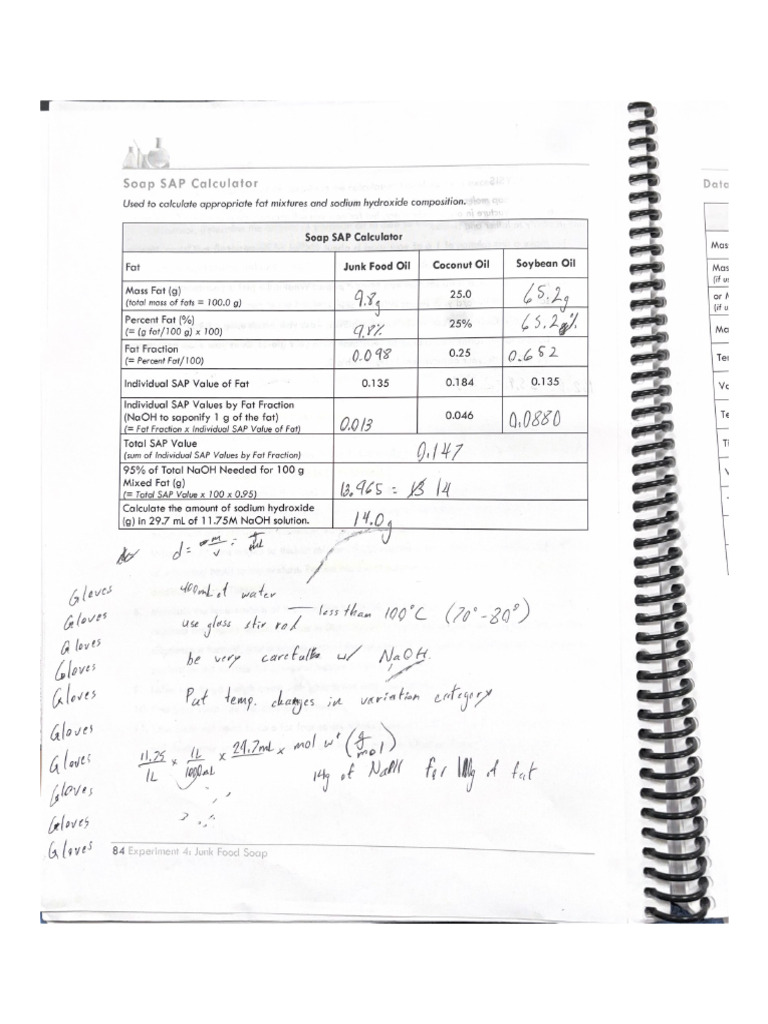 Soap SAP Calculator
Used to calculate appropriate fat mixtures and sodium hydroxide composition.
Soap SAP Calculator
Fat Junk Food Oil Coconut Oil Soybean Oil
Mass Fat (g)
(total mass of fats = 100.0 g) 9.8g 25.0 65.2g
Percent Fat (%)
(= (g fat/100 g) x 100) 9.8% 25% 65.2%
Fat Fraction
(= Percent Fat/100) 0.098 0.25 0.652
Individual SAP Value of Fat 0.135 0.184 0.135
Individual SAP Values by Fat Fraction
(NaOH to saponify 1 g of the fat)
(= Fat Fraction x Individual SAP Value of Fat) 0.013 0.046 0.0880
Total SAP Value
(sum of Individual SAP Values by Fat Fraction) 0.147
95% of Total NaOH Needed for 100 g
Mixed Fat (g)
(= Total SAP Value x 100 x 0.95) 13.965 = 14
Calculate the amount of sodium hydroxide
(g) in 29.7 mL of 11.75M NaOH solution. 14.0g
d = m/v = g/mL
Gloves 400mL of water
Gloves use glass stir rod — less than 100°C (70°-80°)
Gloves
Gloves be very careful w/ NaOH.
Gloves Put temp. changes in variation category
Gloves
Gloves 11.75/1L x 1L/1000mL x 29.7mL x mol wt (g/mol)
14g of NaOH for 100g of fat
Gloves
Gloves
Gloves
84 Experiment 4: Junk Food Soap
Data
Mas
Mas
(if us
or
(if u
Ma
Te
Vo
Te
T
V